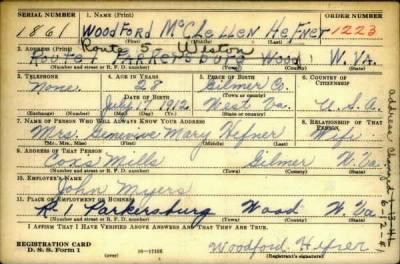 SERIAL NUMBER 1. NAME (Print) ORDER NUMBER
1861 WOODFORD McCLELLEN HEFNER 1223
(First) (Middle) (Last)
Route 5. Weston
2. ADDRESS (Print)
ROUTE 1 PARKERSBURG WOOD W. VA.
(Number and street or R. F. D. number) (Town) (County) (State)
3. TELEPHONE 4. AGE IN YEARS 5. PLACE OF BIRTH 6. COUNTRY OF CITIZENSHIP
None 28 Gilmer Co.
DATE OF BIRTH (Town or county)
July 17 1912 West Va. U.S.A.
(Exchange) (Number) (Mo.) (Day) (Yr.) (State or country)
7. NAME OF PERSON WHO WILL ALWAYS KNOW YOUR ADDRESS 8. RELATIONSHIP OF THAT PERSON
Mrs. Genevive Mary Hefner Wife
(Mr., Mrs., Miss) (First) (Middle) (Last)
9. ADDRESS OF THAT PERSON
Coxs Mills Gilmer W. Va
(Number and street or R. F. D. number) (Town) (County) (State)
10. EMPLOYER'S NAME
John Myers
11. PLACE OF EMPLOYMENT OR BUSINESS
Rt 1 Parkersburg Wood W. Va
(Number and street or R. F. D. number) (Town) (County) (State)
I AFFIRM THAT I HAVE VERIFIED ABOVE ANSWERS AND THAT THEY ARE TRUE.
REGISTRATION CARD
D. S. S. Form 1 Woodford Hefner
(Registrant's signature)
address changed